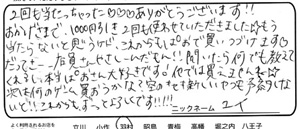 2回も当たっちゃった♡♡♡ありがとうございます!!
おかげさまで、1000円引き2回も使わせていただきました☆もう
当たらないと思うけど、これからもしばおで買いつづけます♡
だってさー、店員さんやさしーんだもん!!聞いたら何でも教えて
くれるし、本当しばおさん大好きです。他では買えませんね☆
次も何のゲーム買おうかなと空のむこう新しいやつも予約しな
いと!!これからもずっとよろしくです!!!!
ニックネーム ユイ
よく利用されるお店を 立川 小作 羽村 昭島 青梅 高幡 堀之内 八王子